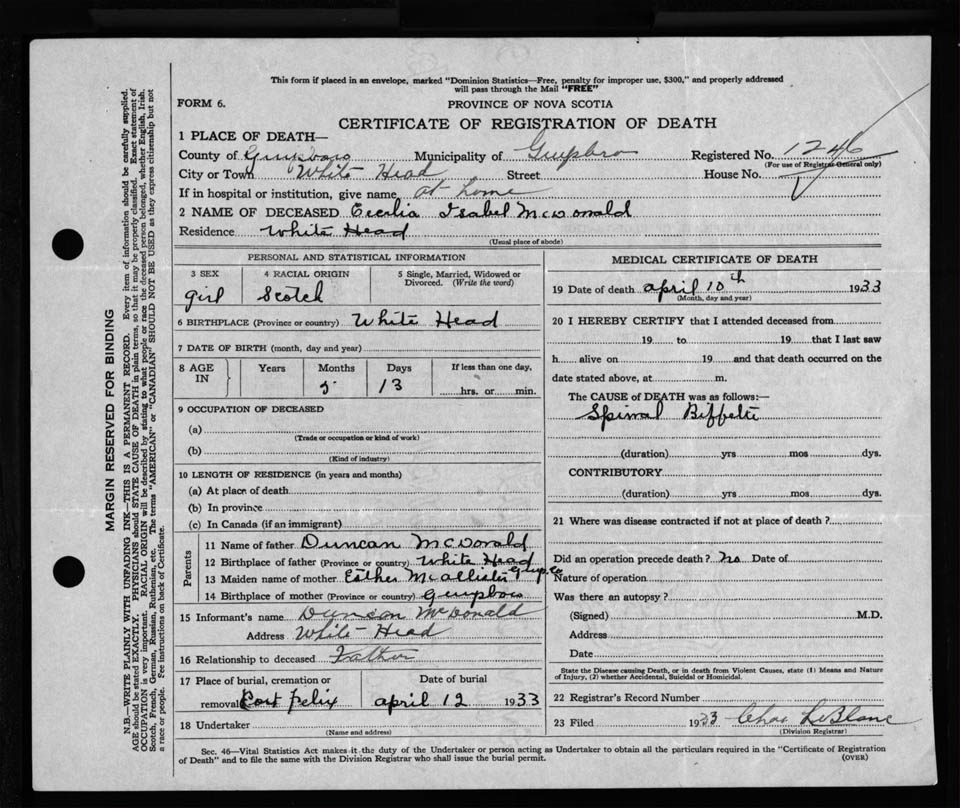 This form if placed in an envelope, marked "Dominion Statistics—Free, penalty for improper use, $300," and properly addressed
will pass through the Mail "FREE"
FORM 6.
PROVINCE OF NOVA SCOTIA
CERTIFICATE OF REGISTRATION OF DEATH
1 PLACE OF DEATH—
County of Guysboro Municipality of Guysboro Registered No. 1246
(For use of Registrar General only)
City or Town White Head Street House No.
If in hospital or institution, give name at home
2 NAME OF DECEASED Cecelia Isabel McDonald
Residence White Head
(Usual place of abode)
PERSONAL AND STATISTICAL INFORMATION
3 SEX 4 RACIAL ORIGIN 5 Single, Married, Widowed or Divorced. (Write the word)
Girl Scotch
6 BIRTHPLACE (Province or country) White Head
7 DATE OF BIRTH (month, day and year)
8 AGE IN Years Months Days If less than one day,
5 13 hrs. or min.
9 OCCUPATION OF DECEASED
(a)
(Trade or occupation or kind of work)
(b)
(Kind of industry)
10 LENGTH OF RESIDENCE (in years and months)
(a) At place of death
(b) In province
(c) In Canada (if an immigrant)
Parents
11 Name of father Duncan McDonald
12 Birthplace of father (Province or country) White Head
13 Maiden name of mother Esther McAllister
14 Birthplace of mother (Province or country) Guysboro
15 Informant's name Duncan McDonald
Address White Head
16 Relationship to deceased Father
17 Place of burial, cremation or removal Port Felix
Date of burial
april 12 1933
18 Undertaker
(Name and address)
MEDICAL CERTIFICATE OF DEATH
19 Date of death april 10th 1933
(Month, day and year)
20 I HEREBY CERTIFY that I attended deceased from
19 to 19 that I last saw
h alive on 19 and that death occurred on the
date stated above, at m.
The CAUSE of DEATH was as follows:—
Spinal Biffelti
(duration) yrs mos dys.
CONTRIBUTORY
(duration) yrs mos dys.
21 Where was disease contracted if not at place of death?
Did an operation precede death? no Date of
Nature of operation
Was there an autopsy?
(Signed) M.D.
Address
Date
State the Disease causing Death, or in death from Violent Causes, state (1) Means and Nature
of Injury, (2) whether Accidental, Suicidal or Homicidal.
22 Registrar's Record Number
23 Filed 1933 Chas LeBlanc
(Division Registrar)
Sec. 46—Vital Statistics Act makes it the duty of the Undertaker or person acting as Undertaker to obtain all the particulars required in the "Certificate of Registration
of Death" and to file the same with the Division Registrar who shall issue the burial permit.
(OVER)
MARGIN RESERVED FOR BINDING
N.B.—WRITE PLAINLY WITH UNFADING INK—THIS IS A PERMANENT RECORD. Every item of information should be carefully supplied.
AGE should be stated EXACTLY. PHYSICIANS should STATE CAUSE OF DEATH in plain terms, so that it may be properly classified. Exact statement of
OCCUPATION is very important. RACIAL ORIGIN will be described by stating to what people or race the deceased person belonged, whether English, Irish,
Scotch, French, German, Russian, Ruthenian, etc. The terms "AMERICAN" or "CANADIAN" SHOULD NOT BE USED as they express citizenship but not
a race or people. Fee instructions on back of Certificate.